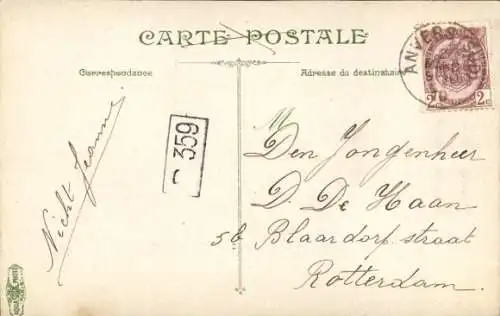 CARTE POSTALE
Correspondance
Adresse du destinataire
ANVERS
2c 2c
359
Nicht Jeanne
Den Jongenheer
D. De Haan
56 Blaardorf straat
Rotterdam.